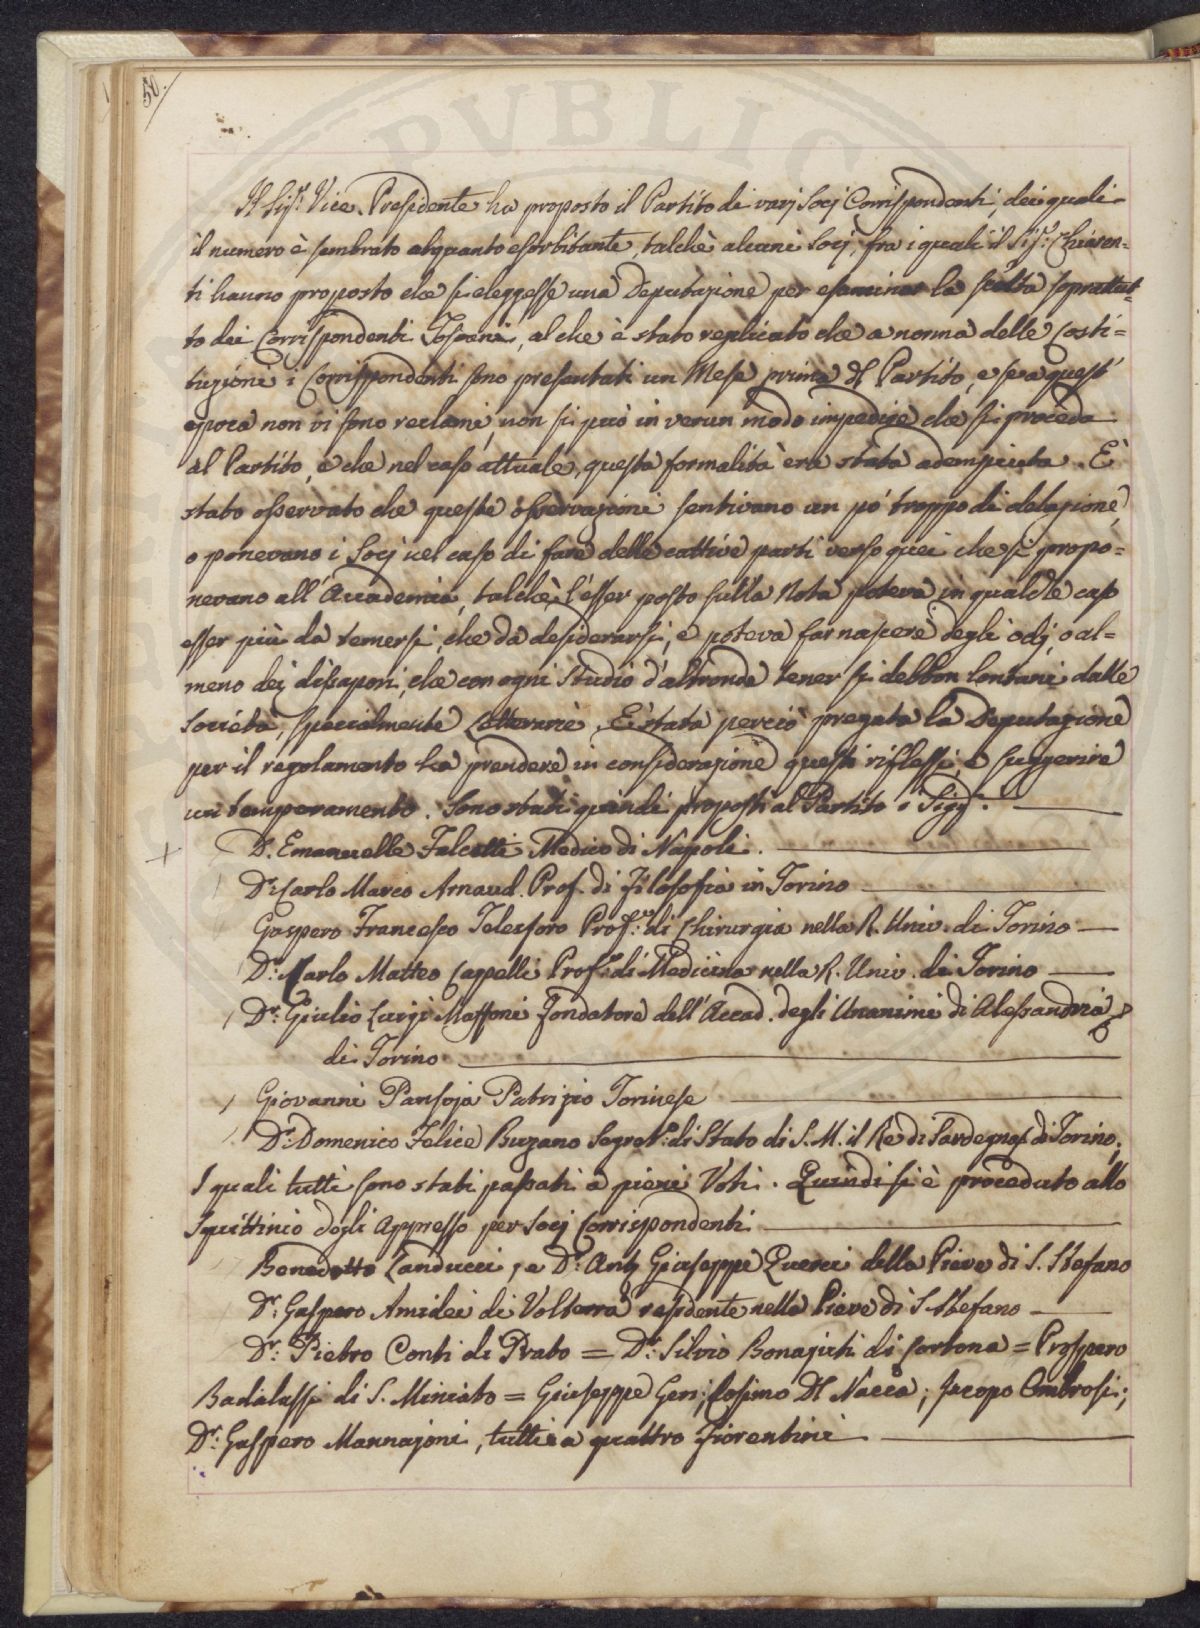 50.
PVBLIC
Il Sig.r Vice-Presidente ha proposto il Partito di varj Socj Corrispondenti, dei quali
il numero è sembrato alquanto esorbitante, talchè alcuni Socj, fra i quali il Sig.r Chiaren=
ti hanno proposto che si eleggesse una Deputazione per esaminar la scelta soprattut=
to dei Corrispondenti Toscani, al che è stato replicato che a norma delle Costi=
tuzioni i Corrispondenti sono presentati un Mese prima dl Partito, e se a quest'
epoca non vi sono reclami, non si può in verun modo impedire che si proceda
al Partito, e che nel caso attuale, questa formalità era stata adempiuta. È
stato osservato che queste osservazioni sentivano un pò troppo di delazione,
o ponevano i Socj nel caso di fare delle cattive parti verso quei che si propo=
nevano all'Accademia, talchè l'esser posto sulla Nota poteva in qualche caso
esser più da temersi, che da desiderarsi, e poteva far nascere degli odj, o al=
meno dei dissapori, che con ogni studio d'altronde tener si debbon lontani dalle
Società, specialmente Letterarie. È stata perciò pregata la Deputazione
per il regolamento ha prendere in considerazione questi riflessi, e suggerire
un temperamento. Sono stati quindi proposti al Partito i Sigg.i
D. Emanuelle Falcetti Medico di Napoli.
D.r Carlo Marco Arnaud. Prof. di Filosofia in Torino
Gaspero Francesco Telesforo Prof.re di Chirurgia nella R. Univ. di Torino
D.r Carlo Matteo Cappelli Prof.re di Medicina nella R. Univ. di Torino
D.r Giulio Luigi Maffoni Fondatore dell'Accad. degli Unanimi di Alessandria
di Torino
Giovanni Pansoja Patrizio Torinese
D.r Domenico Felice Buzano Segret.o di Stato di S. M. il Re di Sardegna di Torino,
I quali tutti sono stati passati a pieni Voti. Quindi si è proceduto allo
Squittinio degli Appresso per Socj Corrispondenti
Benedetto Landucci, e D.r Ant. Giuseppe Querci della Pieve di S. Stefano
D.r Gaspero Amidei di Volterra residente nella Pieve di S. Stefano
D.r Pietro Conti di Prato = D.r Silvio Bonajuti di Cortona = Prospero
Badalassi di S. Miniato = Giuseppe Geri; Cosimo Dl Nacca; Jacopo Ombrosi;
D.r Gaspero Mannajoni, tutti a quattro Fiorentini